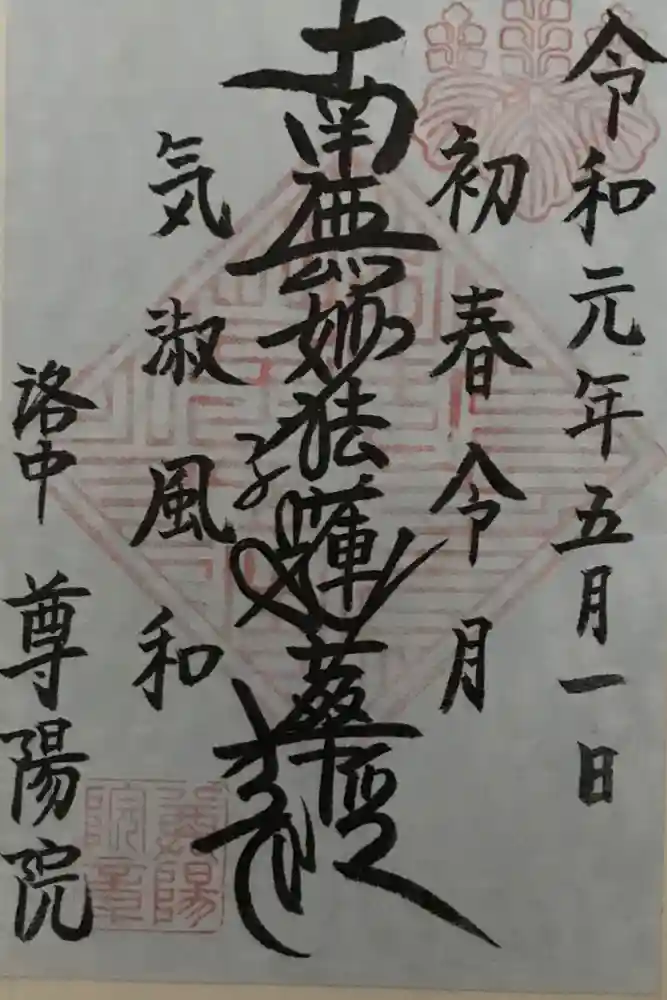 令和元年五月一日
初春令月
南無妙法蓮華経
気淑風和
洛中 尊陽院
尊陽
院章